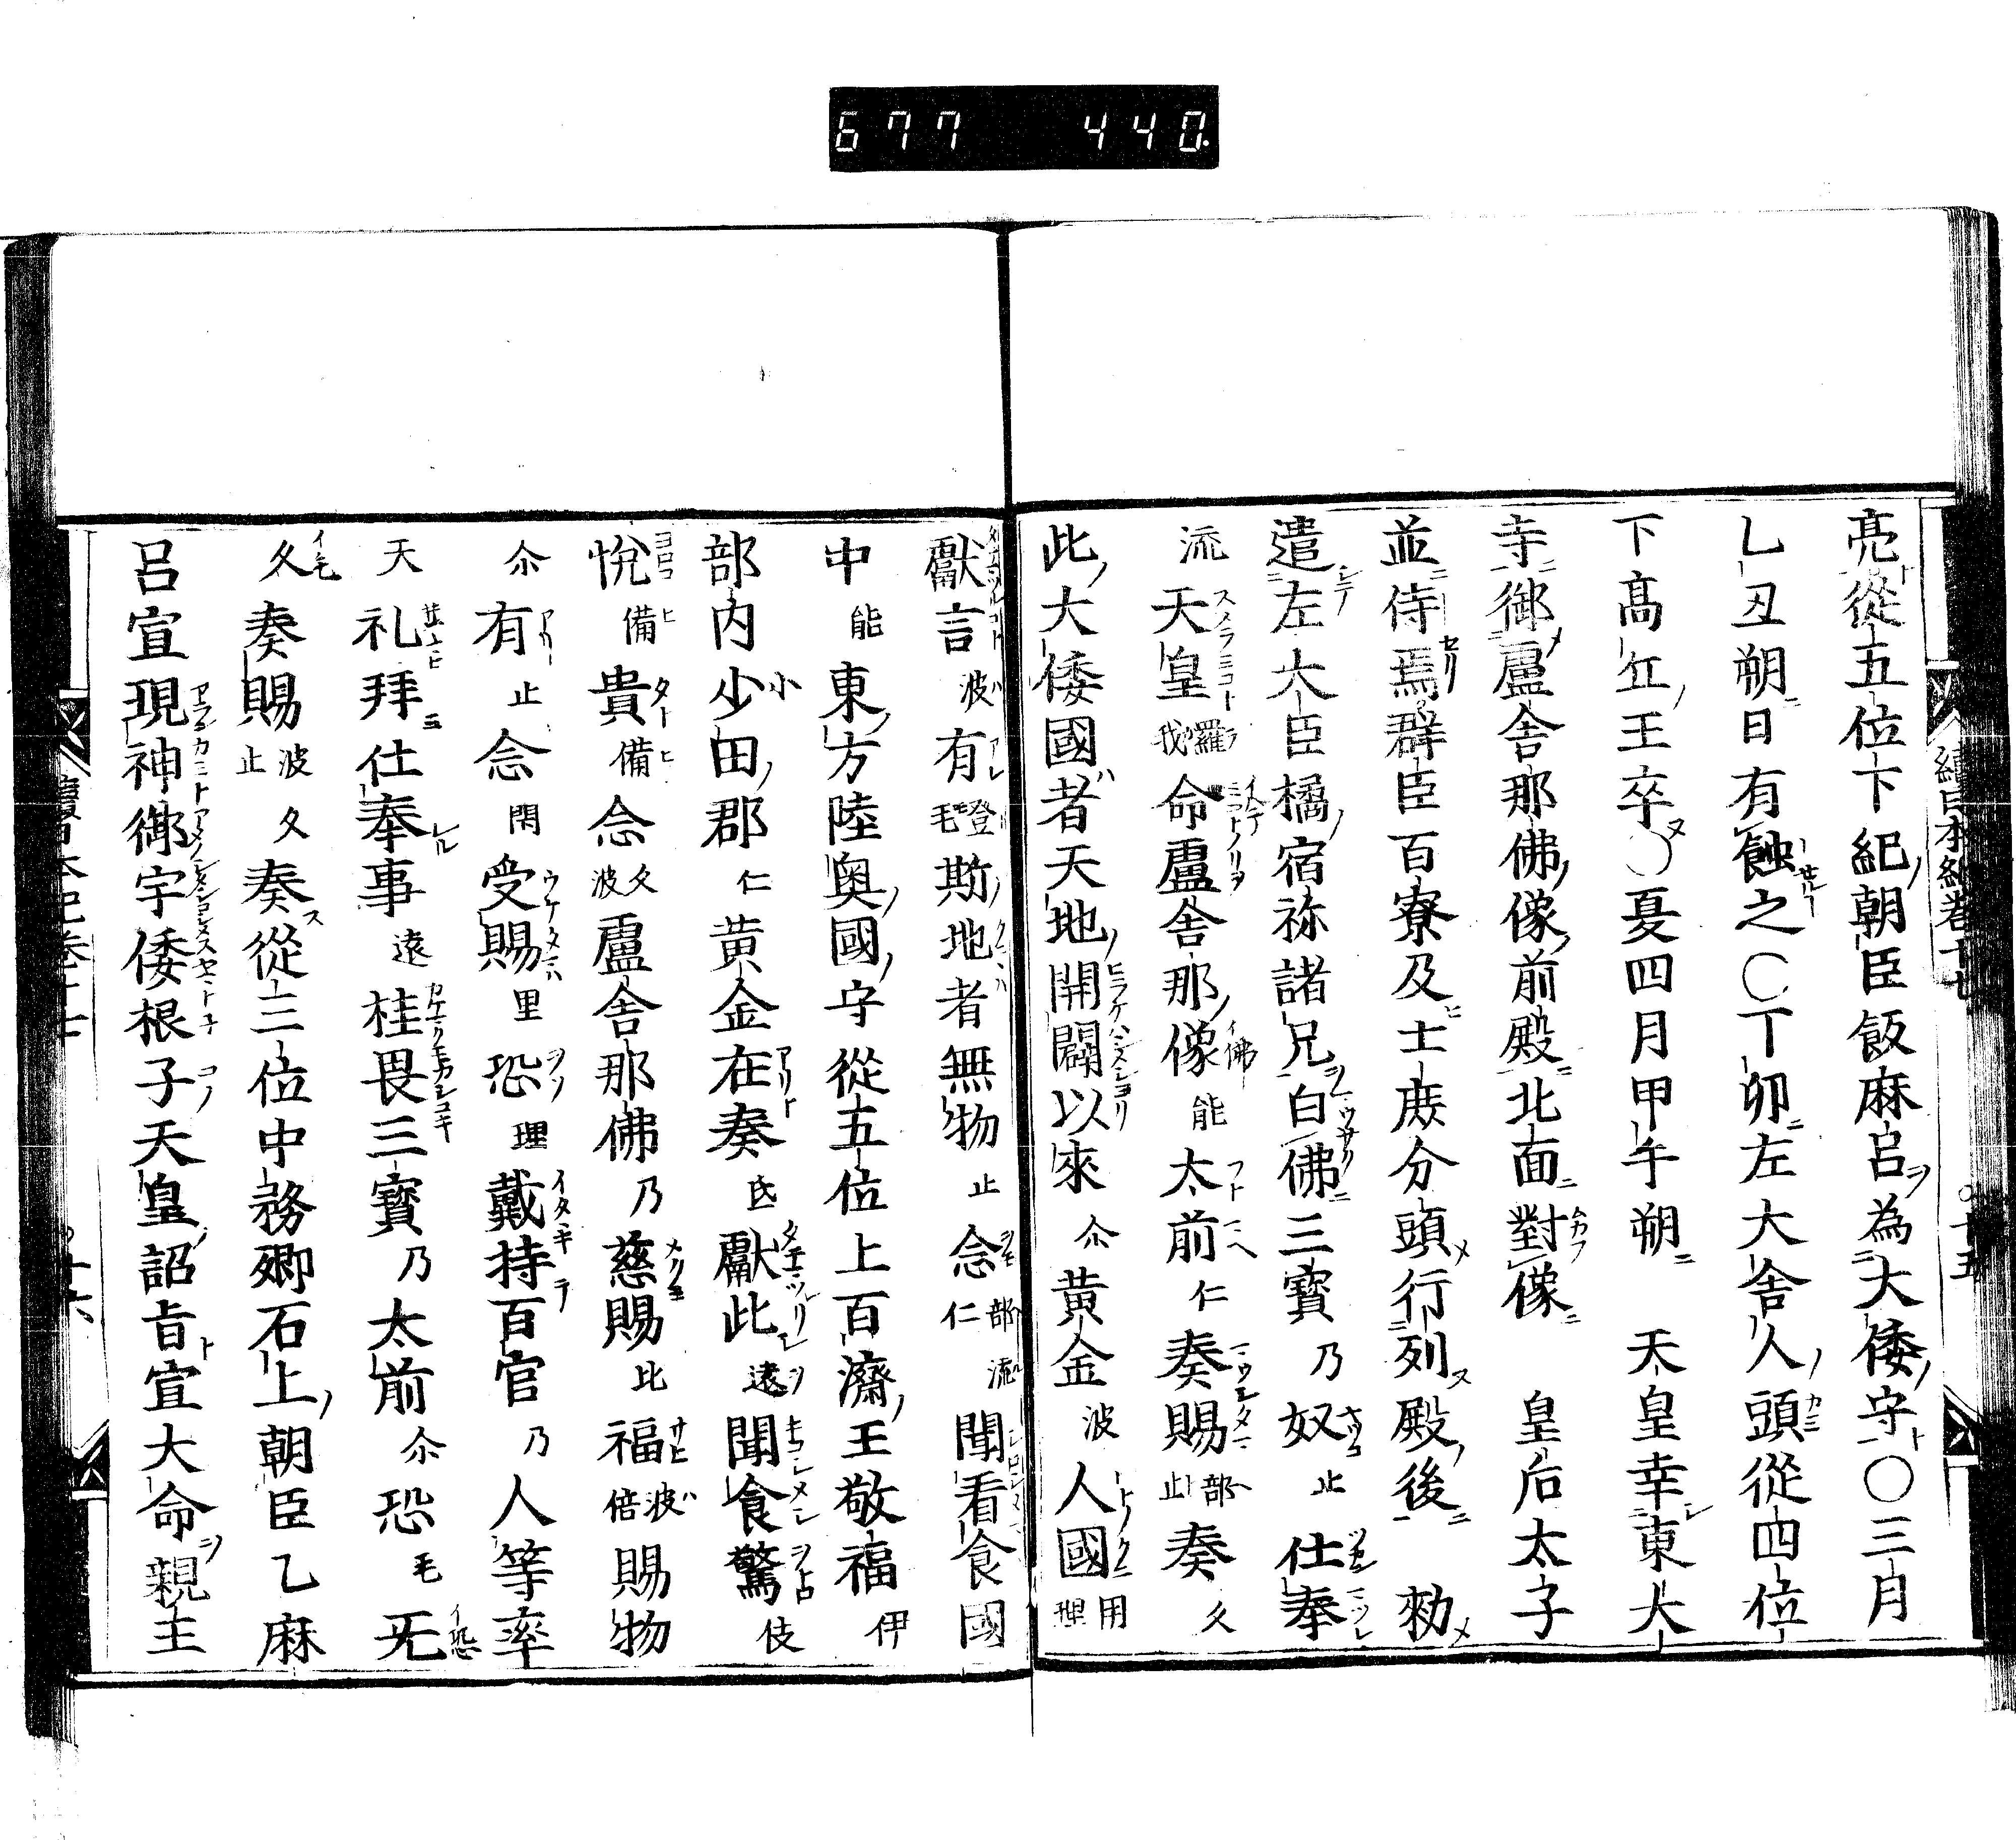 677 440.
續日本紀卷十七
十五
亮從五位下紀朝臣飯麻呂為大倭守〇三月
乙丑朔日有蝕之〇丁卯左大舍人頭從四位
下髙丘王卒〇夏四月甲午朔 天皇幸東大
寺御盧舍那佛像前殿北面對像 皇后太子
並侍焉群臣百寮及士庶分頭行列殿後 勑
遣左大臣橘宿祢諸兄白佛三寳乃奴止仕奉
流天皇羅我命盧舍那像能太前仁奏賜部止奏久
此大倭國者天地開闢以來尒黄金波人國用理
獻言波有登毛斯地者無物止念部流仁聞看食國
中能東方陸奥國守從五位上百濟王敬福伊
部内少田郡仁黄金在奏弖獻此遠聞食驚伎
悅備貴備念久波盧舍那佛乃慈賜比福波倍賜物
尒有止念閇受賜里恐理戴持百官乃人等率
天礼拜仕奉事遠桂畏三寳乃太前尒恐毛无
久奏賜波止久奏從三位中務卿石上朝臣乙麻
呂宣現神御宇倭根子天皇詔旨宣大命親王
十六